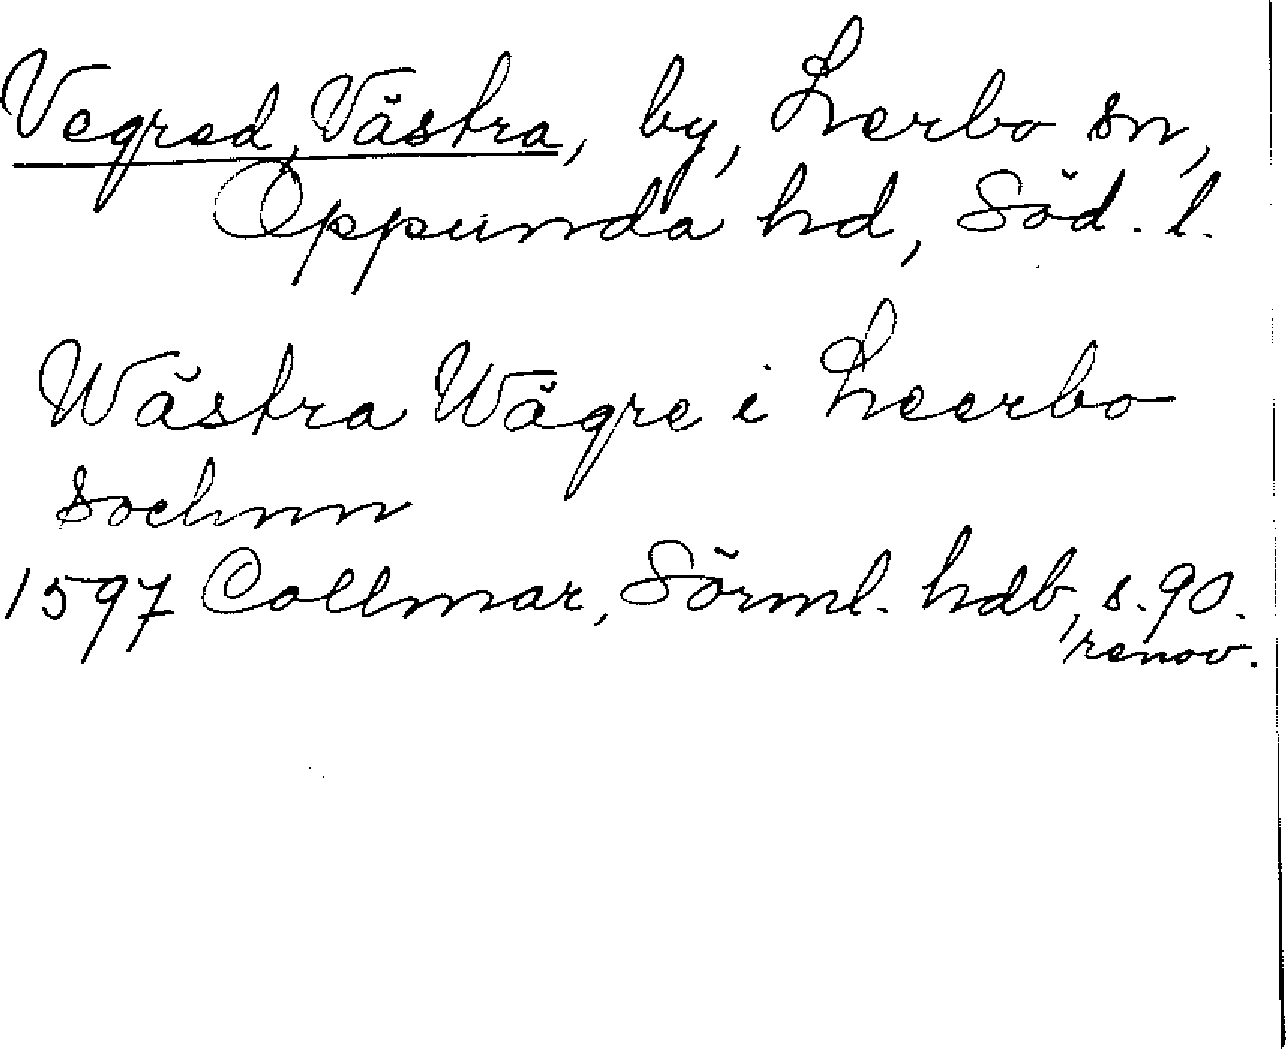 Vegred, Västra, by, Lerbo sn,
Oppunda hd, Söd. l.
Wästra Wägre i Leerbo
sochnn
1597 Collmar, Sörml. hdb, s. 90.
renov.